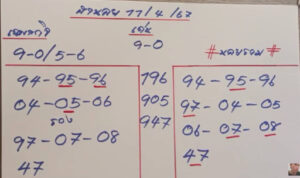 ฮานอย 11/4/67
เจาะกาธิ
9-0/5-6
เด่น
9-0
#หวยรวม#
94-95-96
04-05-06
รอง
97-07-08
47
796
905
947
94-95-96
97-04-05
06-07-08
47